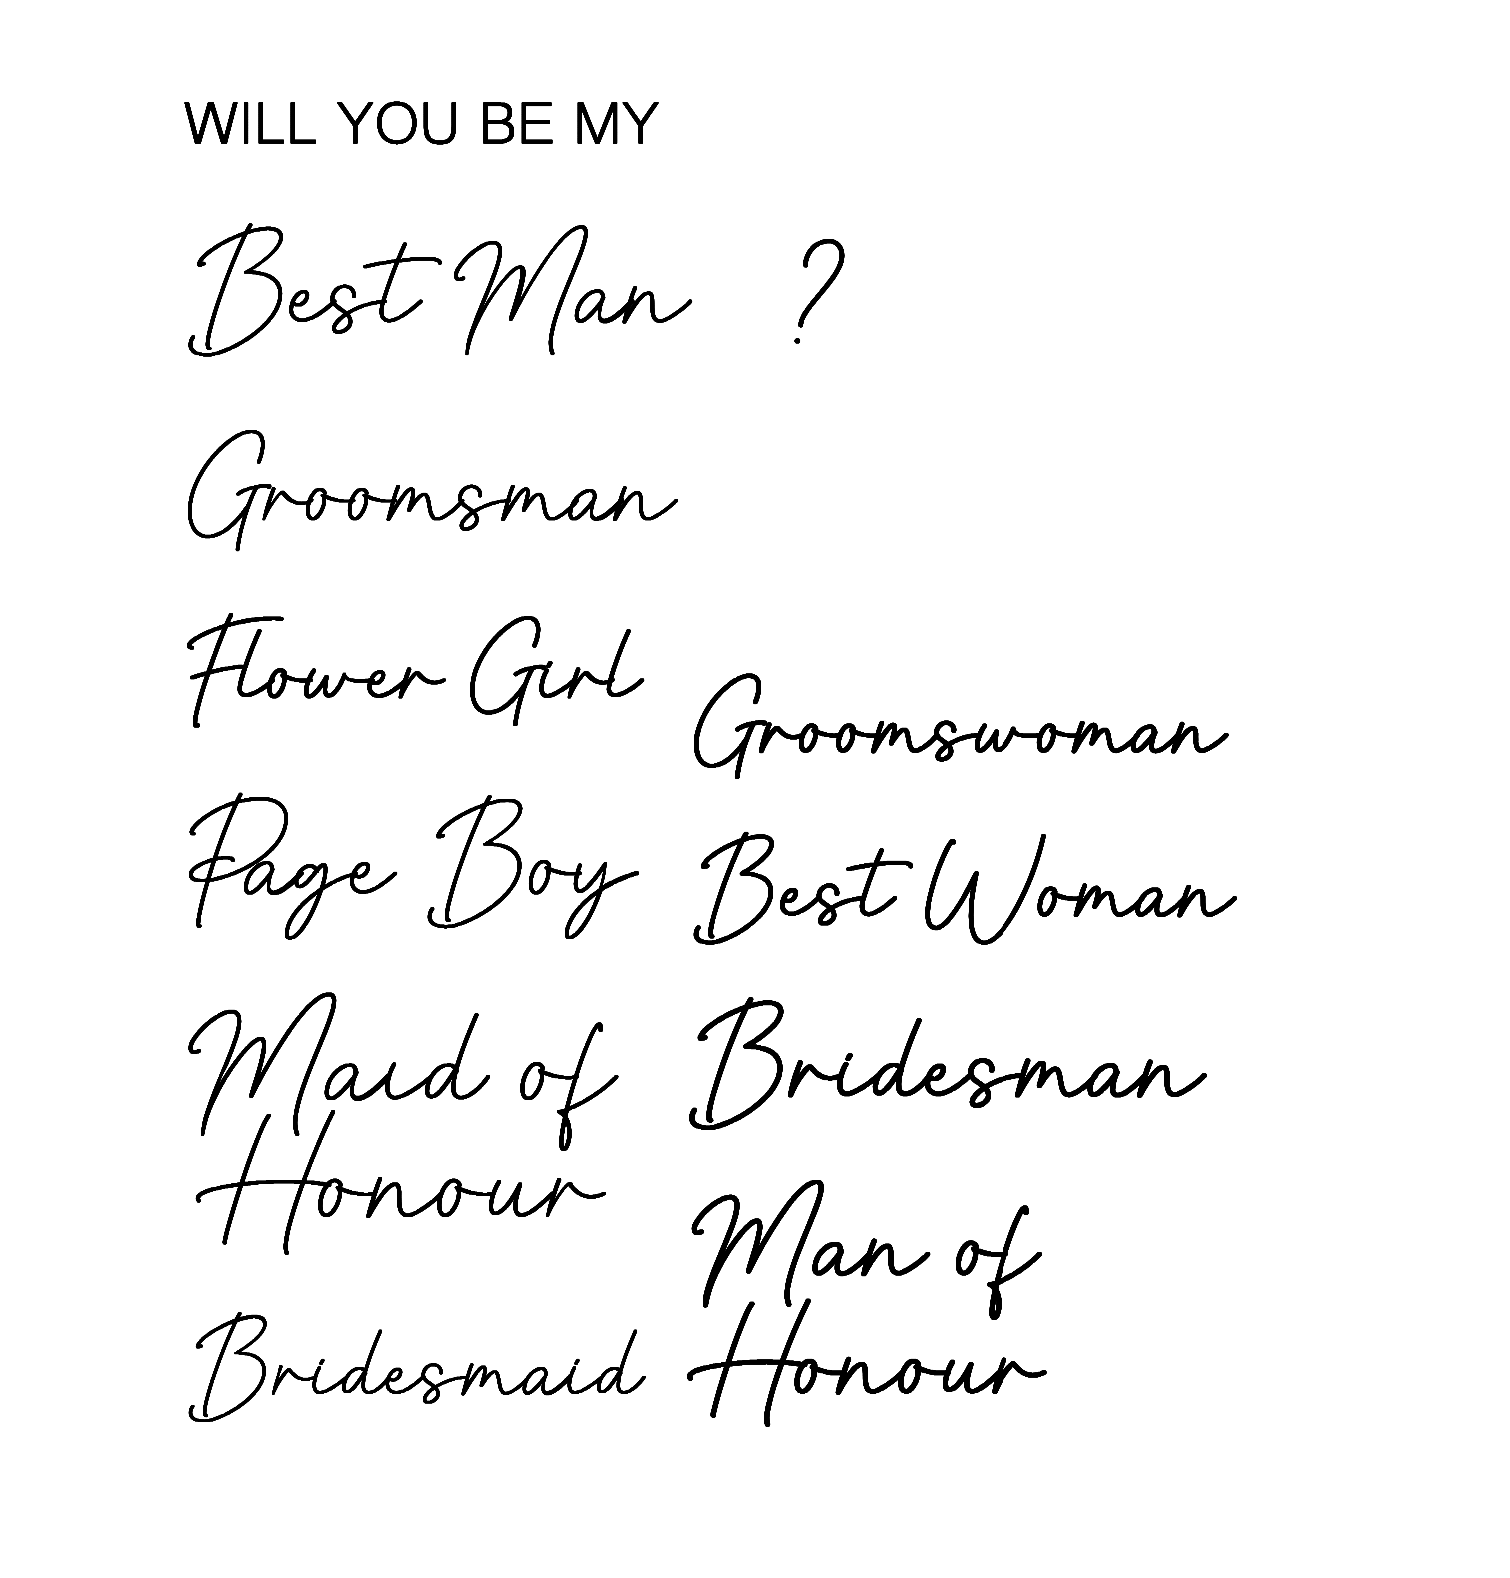 WILL YOU BE MY
Best Man ?
Groomsman
Flower Girl
Page Boy
Maid of
Honour
Bridesmaid
Groomswoman
Best Woman
Bridesman
Man of
Honour